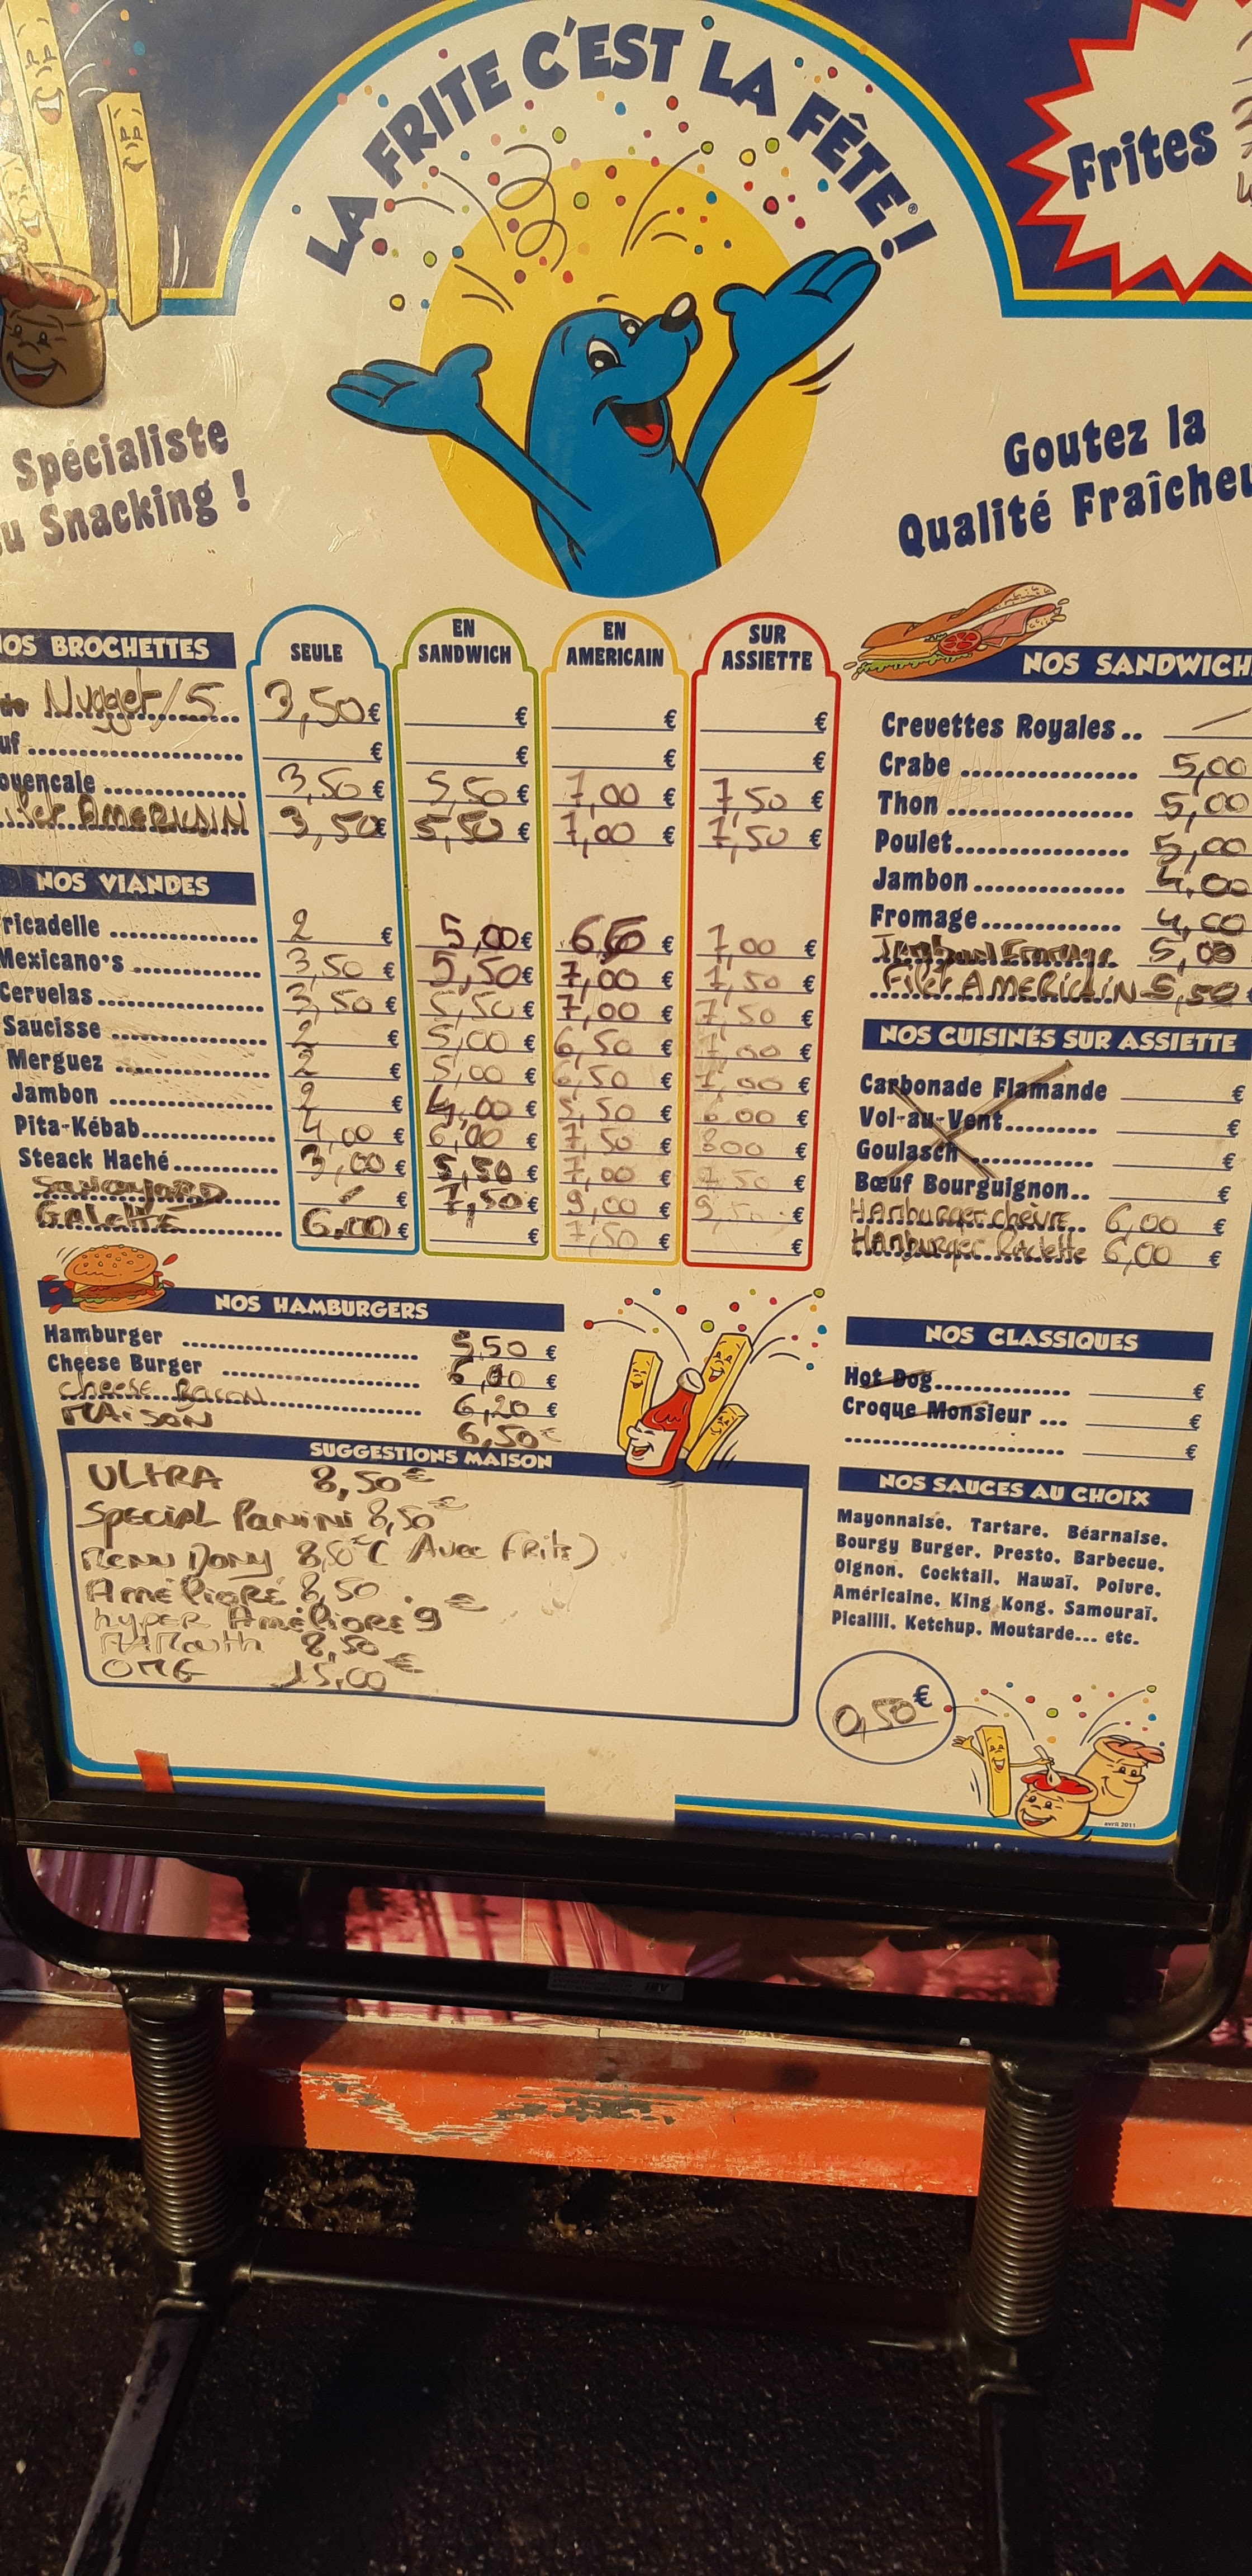 LA FRITE C'EST LA FÊTE!
Frites
Spécialiste
u Snacking !
Goutez la
Qualité Fraîcheu
OS BROCHETTES
SEULE
EN SANDWICH
EN AMERICAIN
SUR ASSIETTE
Nugget/5 3,50 € € € €
uf € € € €
ovencale 3,50 € 5,50 € 7,00 € 7,50 €
AMERICAIN 3,50 € 5,50 € 7,00 € 7,50 €
NOS VIANDES
ricadelle 2 € 5,00 € 6,50 € 7,00 €
Mexicano's 3,50 € 5,50 € 7,00 € 7,50 €
Cervelas 3,50 € 5,50 € 7,00 € 7,50 €
Saucisse 2 € 5,00 € 6,50 € 7,00 €
Merguez 2 € 5,00 € 6,50 € 7,00 €
Jambon 2 € 4,00 € 5,50 € 6,00 €
Pita-Kébab 4,00 € 6,00 € 7,50 € 800 €
Steack Haché 3,00 € 5,50 € 7,00 € 7,50 €
/ € 7,50 € 9,00 € 9,50 €
Galette 6,00 € € 7,50 € €
NOS HAMBURGERS
Hamburger 5,50 €
Cheese Burger €
cheese Bacon 6,20 €
MAISON 6,50 €
SUGGESTIONS MAISON
ULTRA 8,50€
SPECIAL Panini 8,50€
8,50€ (Avec frite)
AMÉLIORÉ 8,50
hyper AMéLiORé 9 €
8,50 €
OMG 15,00
NOS SANDWICH
Crevettes Royales ..
Crabe 5,00
Thon 5,00
Poulet 5,00
Jambon 4,00
Fromage 4,00
Jambon Fromage 5,00
Filet AMERICAIN 5,50 €
NOS CUISINÉS SUR ASSIETTE
Carbonade Flamande €
Vol-au-Vent €
Goulasch €
Bœuf Bourguignon €
HAmburger chèvre 6,00 €
HAmburger Raclette 6,00 €
NOS CLASSIQUES
Hot Dog €
Croque Monsieur €
€
NOS SAUCES AU CHOIX
Mayonnaise, Tartare, Béarnaise,
Bourgy Burger, Presto, Barbecue,
Oignon, Cocktail, Hawaï, Poivre,
Américaine, King Kong, Samouraï,
Picalili, Ketchup, Moutarde... etc.
0,50€
avril 2011